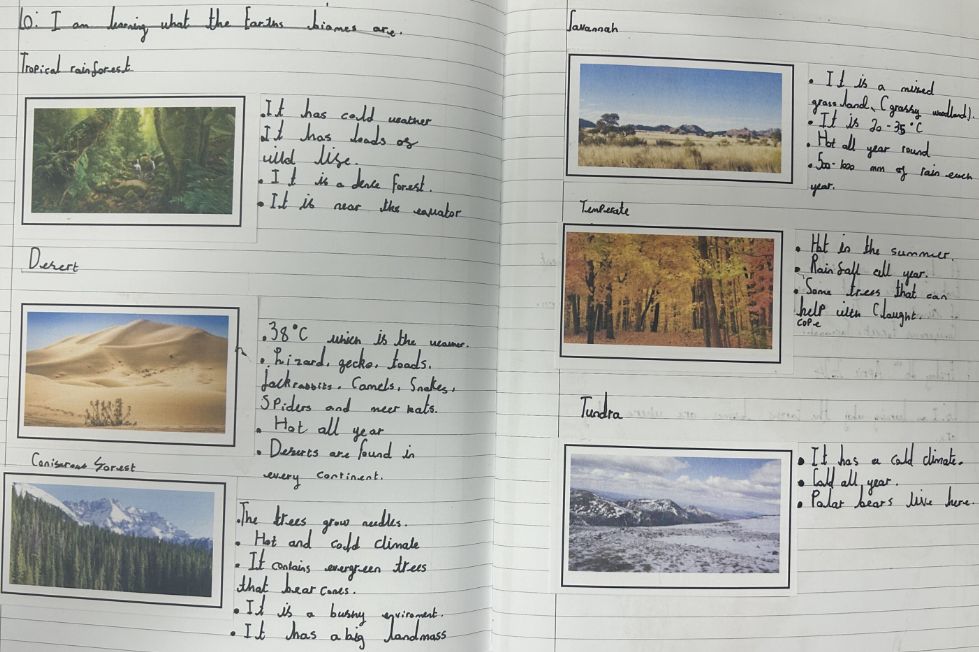 LO: I am learning what the Earths biomes are.
Tropical rainforest
• It has cold weather
It has loads of
wild life.
• It is a dence forest.
• It is near the equator
Desert
• 38°C which is the
• Lizard, gecko, toads,
Jackrabbits, Camels, Snakes,
Spiders and meer kats.
• Hot all year
• Deserts are found in
every continent.
Coniferous forest
• The trees grow needles.
• Hot and cold climate
• It contains evergreen trees
that bear cones.
• It is a bushy enviroment.
• It has a big landmass
Savannah
• It is a mixed
grassland, (grassy woodland).
• It is 20-35°C
• Hot all year round
• 500-1000 mm of rain each
year.
Temperate
• Hot in the summer.
• Rainfall all year.
• Some trees that can
help
cope
Tundra
• It has a cold climate.
• Cold all year.
• Polar bears live here.